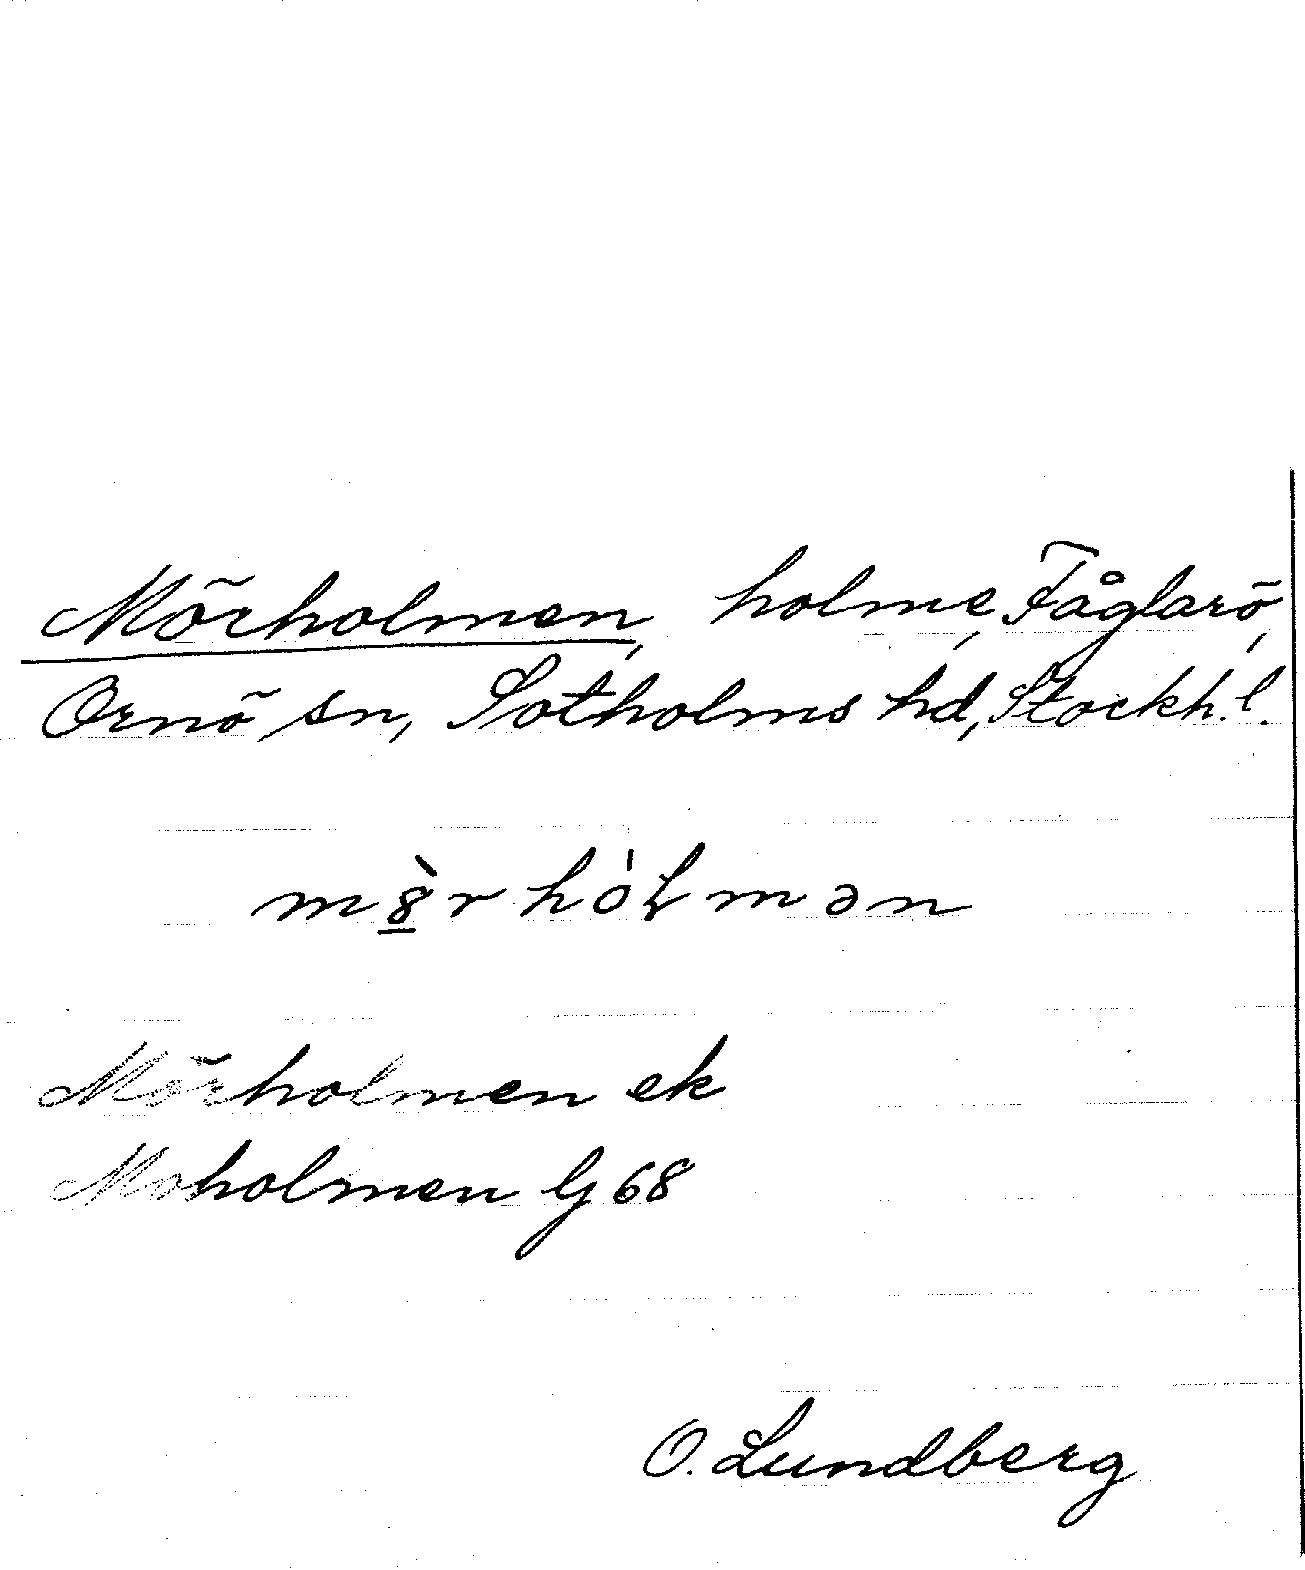 Mörholmen, holme, Fåglarö,
Ornö sn, Sotholms hd, Stockh. l.
Mörholmen ek
Moholmen G 68
O. Lundberg